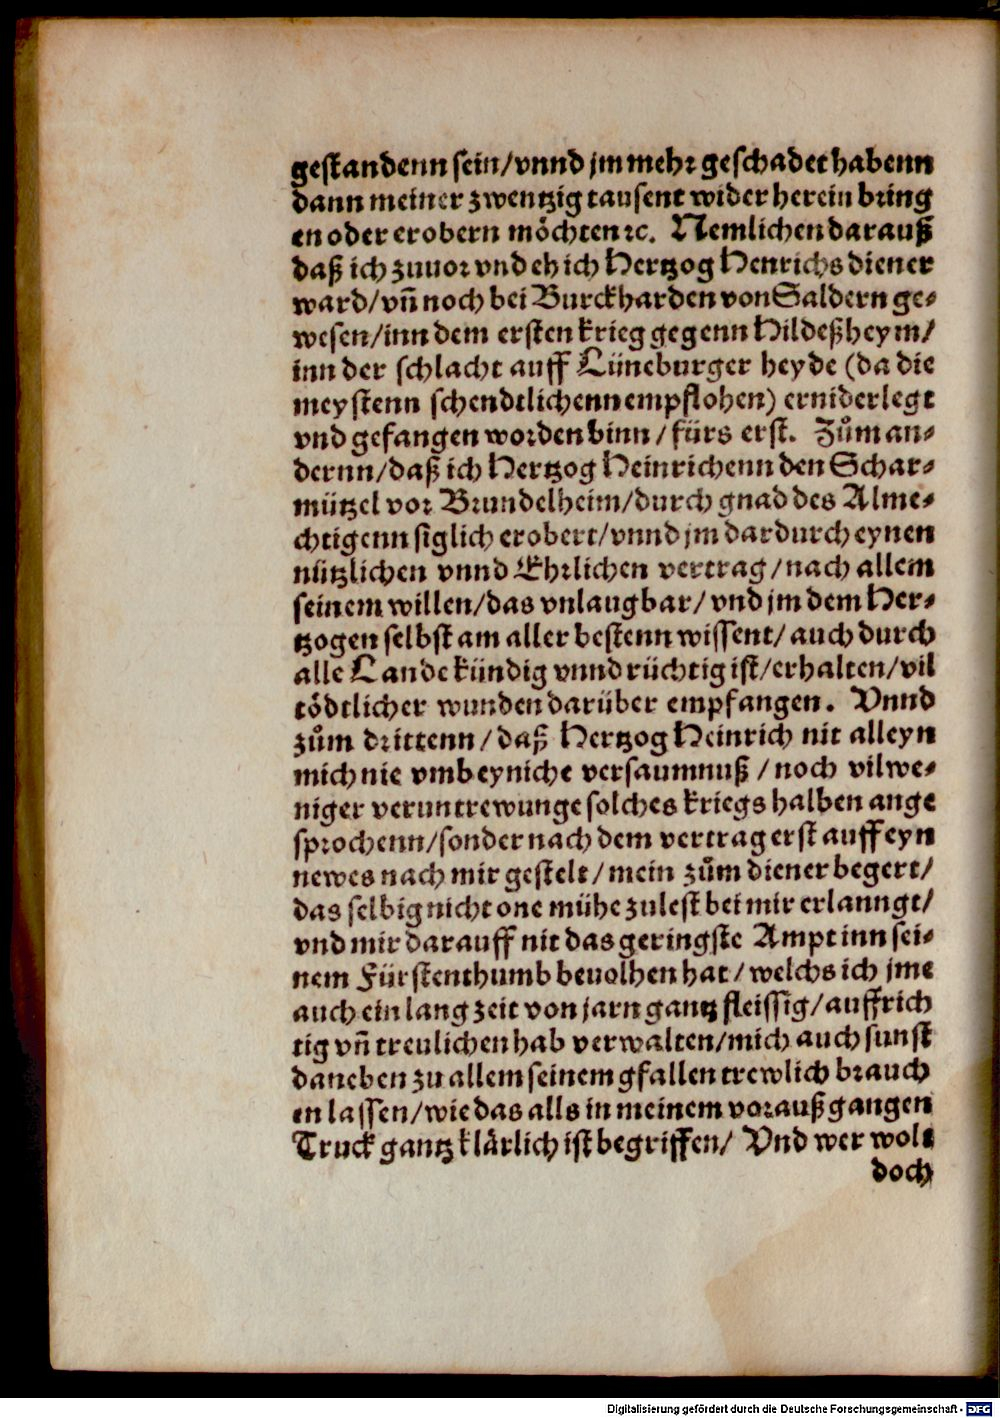 gestandenn sein/vnnd jm mehr geschadet habenn
dann meiner zwentzig tausent wider herein bring
en oder erobern möchten ꝛc. Nemlichen darauß
daß ich zuuor vnd eh ich Hertzog Henrichs diener
ward/vñ noch bei Burckharden von Saldern ge-
wesen/inn dem ersten krieg gegenn Hildeßheym/
inn der schlacht auff Lüneburger heyde (da die
meystenn schendtlichenn empflohen) erniderlegt
vnd gefangen worden binn/fürs erst. Zům an-
dernn/daß ich Hertzog Heinrichenn den Schar-
mützel vor Brundelheim/durch gnad des Alme-
chtigenn siglich erobert/vnnd jm dardurch eynen
nützlichen vnnd Ehrlichen vertrag/nach allem
seinem willen/das vnlaugbar/vnd jm dem Her-
tzogen selbst am aller bestenn wissent/auch durch
alle Lande kündig vnnd rüchtig ist/erhalten/vil
tödtlicher wunden darüber empfangen. Vnnd
zům drittenn/daß Hertzog Heinrich nit alleyn
mich nie vmb eyniche versaumnuß/noch vilwe-
niger veruntrewunge solches kriegs halben ange
sprochenn/sonder nach dem vertrag erst auff eyn
newes nach mir gestelt/mein zům diener begert/
das selbig nicht one mühe zulest bei mir erlanngt/
vnd mir darauff nit das geringste Ampt inn sei-
nem Fürstenthumb beuolhen hat/welchs ich jme
auch ein lang zeit von jarn gantz fleissig/auffrich
tig vñ treulichen hab verwalten/mich auch sunst
daneben zu allem seinem gfallen trewlich brauch
en lassen/wie das alls in meinem vorauß gangen
Truck gantz klärlich ist begriffen/ Vnd wer wolt
doch
Digitalisierung gefördert durch die Deutsche Forschungsgemeinschaft - DFG